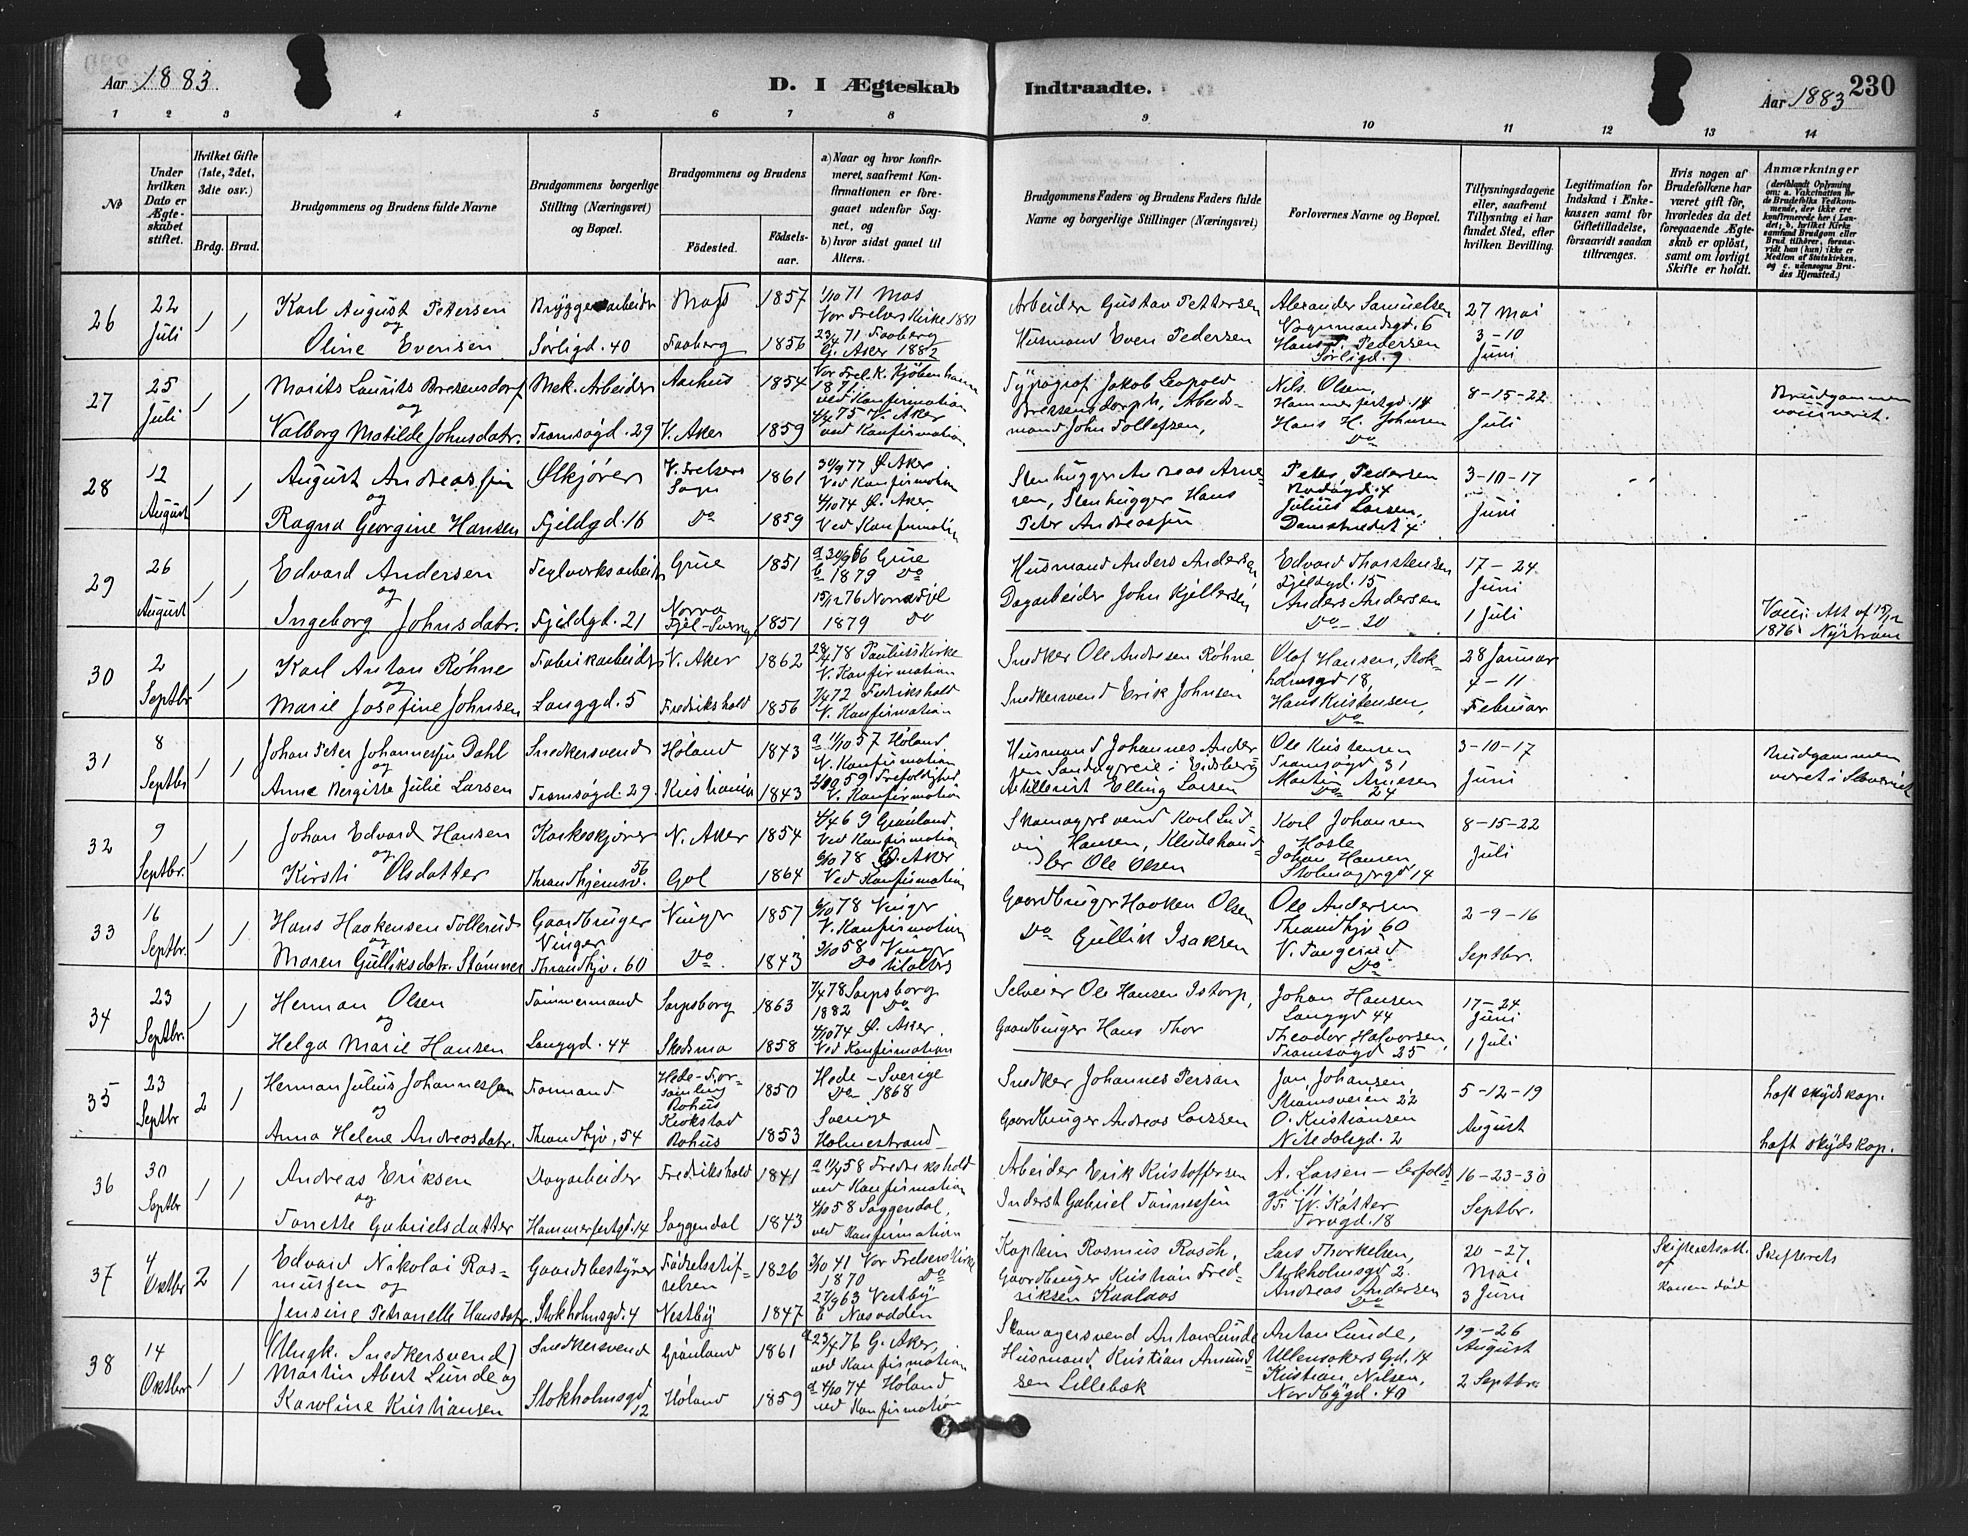 Aar 1883.
D. I Ægteskab Indtraadte.
Aar 1883
230
1 2 3 4 5 6 7 8 9 10 11 12 13 14
No
Under hvilken Dato er Ægteskabet stiftet.
Hvilket Gifte (1ste, 2det, 3die osv.)
Brdg. Brud.
Brudgommens og Brudens fulde Navne
Brudgommens borgerlige Stilling (Næringsvei) og Bopæl.
Brudgommens og Brudens
Födested.
Födsels-aar.
a) Naar og hvor konfirmeret, saafremt Konfirmationen er foregaaet udenfor Sognet, og
b) hvor sidst gaaet til Alters.
Brudgommens Faders og Brudens Faders fulde Navne og borgerlige Stillinger (Næringsvei)
Forlovernes Navne og Bopæl.
Tillysningsdagene eller, saafremt Tillysning ei har fundet Sted, efter hvilken Bevilling.
Legitimation for Indskud i Enkekassen samt for Giftetilladelse, forsaavidt saadan tiltrænges.
Hvis nogen af Brudefolkene har været gift før, hvorledes da det foregaaende Ægteskab er opløst, samt om lovligt Skifte er holdt.
Anmærkninger
26
22 Juli
1 1
Karl August Pettersen
og
Oline Evensen
Bryggeriarbeider
Sørligd. 40
Moss
Faaberg
1857
1856
1/10 71 Mos
Vor Frelsers Kirke 1881
23/4 71 Faaberg
G. Aker 1882
Arbeider Gustav Pettersen
Husmand Even Pedersen
Alexander Samuelsen
Vognmandsgd. 6
Hans P. Pedersen
Sørligd. 9
27 Mai
3-10
Juni
27
25 Juli
1 1
Morits Laurits Bressensdorf
og
Valborg Matilde Johnsdatr.
Mek. Arbeider
Tromsøgd. 29
Aarhus
V. Aker
1854
1859
Vor Frel. K. Kjøbenhavn
1871
ved Konfirmation
4/4 75 V. Aker
ved Konfirmation
Typograf Jakob Leopold
Bressensdorph, Arbeidsmand John Tollefsen,
Nils Olsen,
Hammerfestgd. 14
Hans H. Johnsen
Do
8-15-22
Juli
Brudgommen
vaccineret.
28
12 August
1 1
August Andreassen
og
Ragna Georgine Hansen
Ølkjører
Fjeldgd. 16
V. Frelsers
Sogn
Do
1861
1859
30/9 77 Ø. Aker
Ved Konfirmation
4/10 74 Ø. Aker.
Ved Konfirmation
Stenhugger Andreas Arnesen, Stenhugger Hans
Peter Andreassen
Peter Pedersen
Bodøgd. 4
Julius Larsen,
Damstredet 4
3-10-17
Juni
29
26 August
1 1
Edvard Andersen
og
Ingeborg Johnsdatr.
Teglverksarbeider
Fjeldgd. 21
Grue
Norra
Fjel-Sverige
1851
1851
a 30/9 66 Grue
b 1879 Do
15/12 76 Norra Fjel
1879 Do
Husmand Anders Andersen
Dagarbeider John Kjellersen
Edvard Thorstensen
Fjeldgd. 15
Anders Andersen
Do - 20
17-24
Juni
1 Juli
Vacc. Att. af 15/12
1876 Nyström
30
2 Septbr
1 1
Karl Anton Røhne
og
Marie Josefine Johnsen
Fabrikarbeider
Langgd. 5
V. Aker
Fredrikshald
1862
1856
28/4 78 Paulus Kirke
V. Konfirmation
7/4 72 Fredrikshald
V. Konfirmation
Snedker Ole Andresen Røhne
Snedkersvend Erik Johnsen
Olaf Hansen, Stokholmsgd 18,
Hans Kristensen,
Do
28 Januar
4-11
Februar
31
8 Septbr
1 1
Johan Peter Johannessen Dahl
og
Anne Birgitte Julie Larsen
Snedkersvend
Tromsøgd. 29.
Høland
Kristiania
1843
1843
a 11/10 57 Høland
V. Konfirmation
2/10 59 Trefoldighed
V. Konfirmation
Husmand Johannes Andersen Sandagereie i Eidsberg
Artillerist Elling Larsen
Ole Kristensen
Tromsøgd 31
Martin Arnesen
Do 24
3-10-17
Juni
Brudgommen
været i Amerika
32
9 Septbr.
1 1
Johan Edvard Hansen
og
Kirsti Olsdatter
Kaskeskjører
Throndhjemsv. 56
N. Aker
Gol
1854
1864
4/4 69 Grønland
Ved Konfirmation
6/10 78 Ø. Aker
Ved Konfirmation
Skomagersvend Karl Ludvig Hansen, Kludehandler Ole Olsen
Karl Johansen
Hasle
Johan Hansen,
Stolmagergd 14
8-15-22
Juli
33
16 Septbr.
1 1
Hans Haakensen Tollerud
og
Maren Gulliksdatr. Stømner
Gaardbruger
Vinger
Throndhjv. 60
Vinger
Do
1857
1843
6/10 78 Vinger
V. Konfirmation
3/10 58 Vinger
Do tilalters
Gaardbruger Haaken Olsen
Do Gullik Isaksen
Ole Andersen
Throndhjv 60
V. Tangerud
Do
2-9-16
Septbr.
34
23 Septbr.
1 1
Herman Olsen
og
Helga Marie Hansen
Tømmermand
Langgd. 44
Sarpsborg
Skedsmo
1863
1858
7/4 78 Sarpsborg
1882 Do
4/10 74 Ø. Aker.
Ved Konfirmation
Selveier Ole Hansen Istorp,
Gaardbruger Hans Thor
Johan Hansen
Langgd 44
Theodor Halvorsen,
Tromsøgd 25
17-24
Juni
1 Juli
35
23 Septbr
2 1
Herman Julius Johannessen
og
Anna Helene Andreasdatr.
Formand
Throndhjv. 54
Hede-Forsamling
Bohus
Krokstad
Bohus
1850
1853
Hede - Sverige
Do 1868
Sverige
Holmestrand
Snedker Johannes Persan
Gaardbruger Andreas Larssen
Jon Johansen,
Strømsveien 22
O. Kristiansen
Nitedalsgd. 2
5-12-19
August
haft skydskop.
haft skydskop.
36
30 Septbr
1 1
Andreas Eriksen
og
Tonette Gabrielsdatter
Dagarbeider
Hammerfestgd. 14
Fredrikshald
Soggendal
1841
1843
a 11/4 58 Fredrikshald
ved Konfirmation
4/10 58 Soggendal,
ved Konfirmation
Arbeider Erik Kristoffersen
Inderst Gabriel Tønnessen
A. Larsen - Serfoldsgd. 11
Fr. W. Køtter
Torvgd. 18
16-23-30
Septbr.
37
4 Oktbr
2 1
Edvard Nikolai Rasmussen og
Jensine Petronelle Hansdatr.
Gaardsbestyrer
Stokholmsgd. 4
Fødselsstiftelsen
Vestby
1826
1847
3/10 41 Vor Frelsers Kirke
1870 Do
27/9 63 Vestby
b Nesodden
Kaptein Rasmus Rasch.
Gaardbruger Kristian Fredriksen Kaalaas
Lars Thorkelsen,
Stokholmsgd 2.
Andreas Andersen
Do
20-27.
Mai
3 Juni
Skifteretsatt.
af
Konen død
Skifterets
38
14 Oktbr
1 1
(Ungk. Snedkersvend)
Martin Albert Lunde og
Karoline Kristiansen
Snedkersvend
Stokholmsgd 12
Grønland
Høland
1861
1859
a 23/4 76 G. Aker,
ved Konfirmation
a 4/10 74 Høland
ved Konfirmation
Skomagersvend Anton Lunde
Husmand Kristian Amundsen Lillebæk
Anton Lunde,
Ullensakers Gd. 14
Kristian Nilsen,
Nordbygd. 40
19-26
August
2 Septbr.